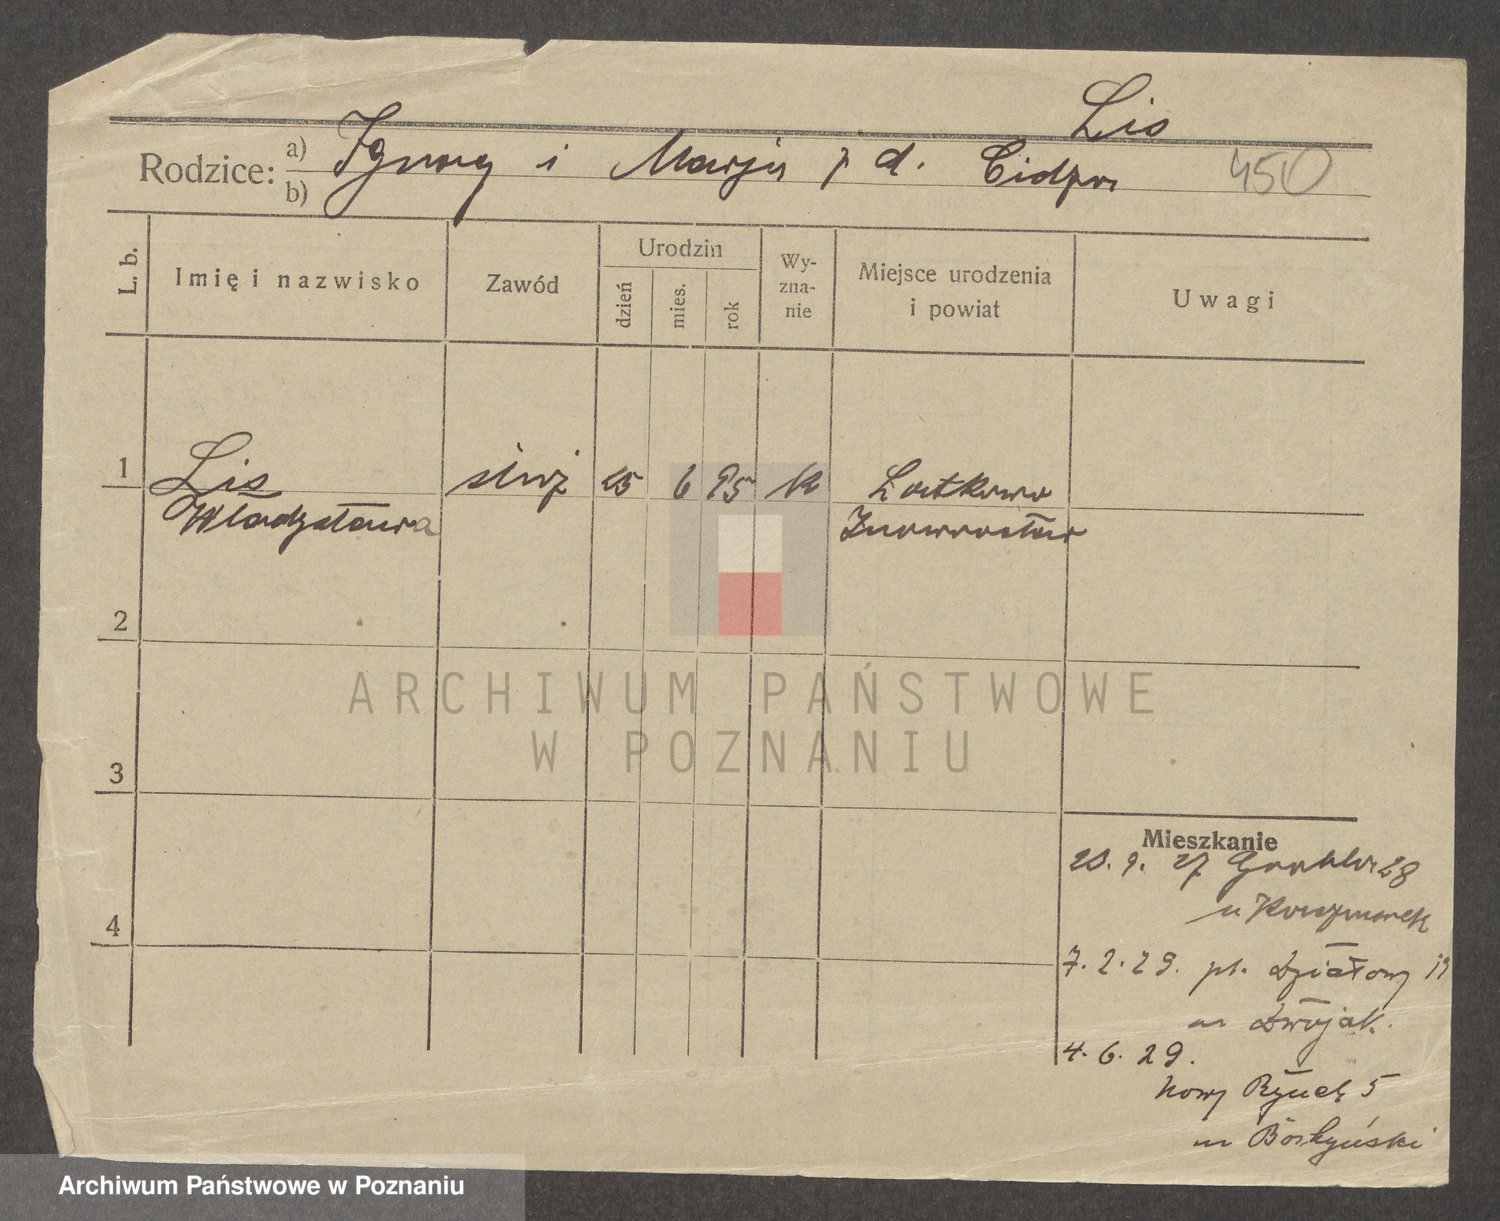 Lis
Rodzice: a) b) Ignacy i Marja z d.
450
L. b.
Imię i nazwisko
Zawód
Urodzin
dzień
mies.
rok
Wy-
zna-
nie
Miejsce urodzenia
i powiat
Uwagi
1 Lis służ 25 6 95 k
Władysława Inowrocław
2
ARCHIWUM PAŃSTWOWE
W POZNANIU
3
Mieszkanie
20. 9. 27 28
u Kaczmarek
4
7. 2. 29. pl. Działowy
u Dwojak.
4. 6. 29.
Nowy Rynek 5
u
Archiwum Państwowe w Poznaniu